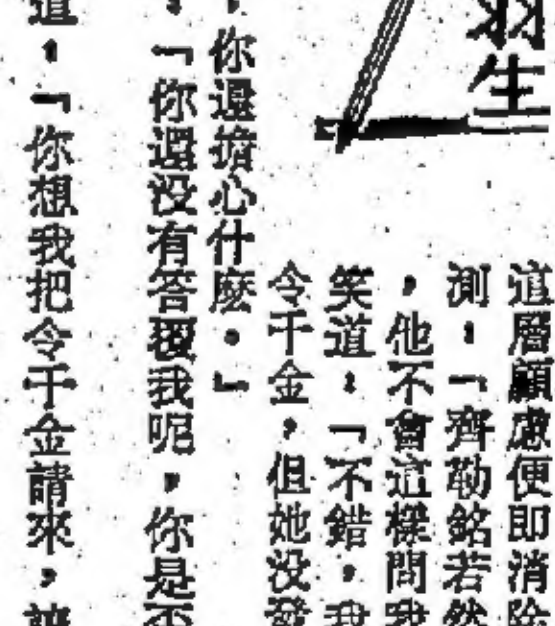 羽生
這層顧慮便即消除
測：「齊勒銘若然
，他不會這樣問我
笑道：「不錯，我
令千金，但她没發
，你還擔心什麽。」
：「你還没有答覆我呢，你是否
道：「你想我把令千金請來，